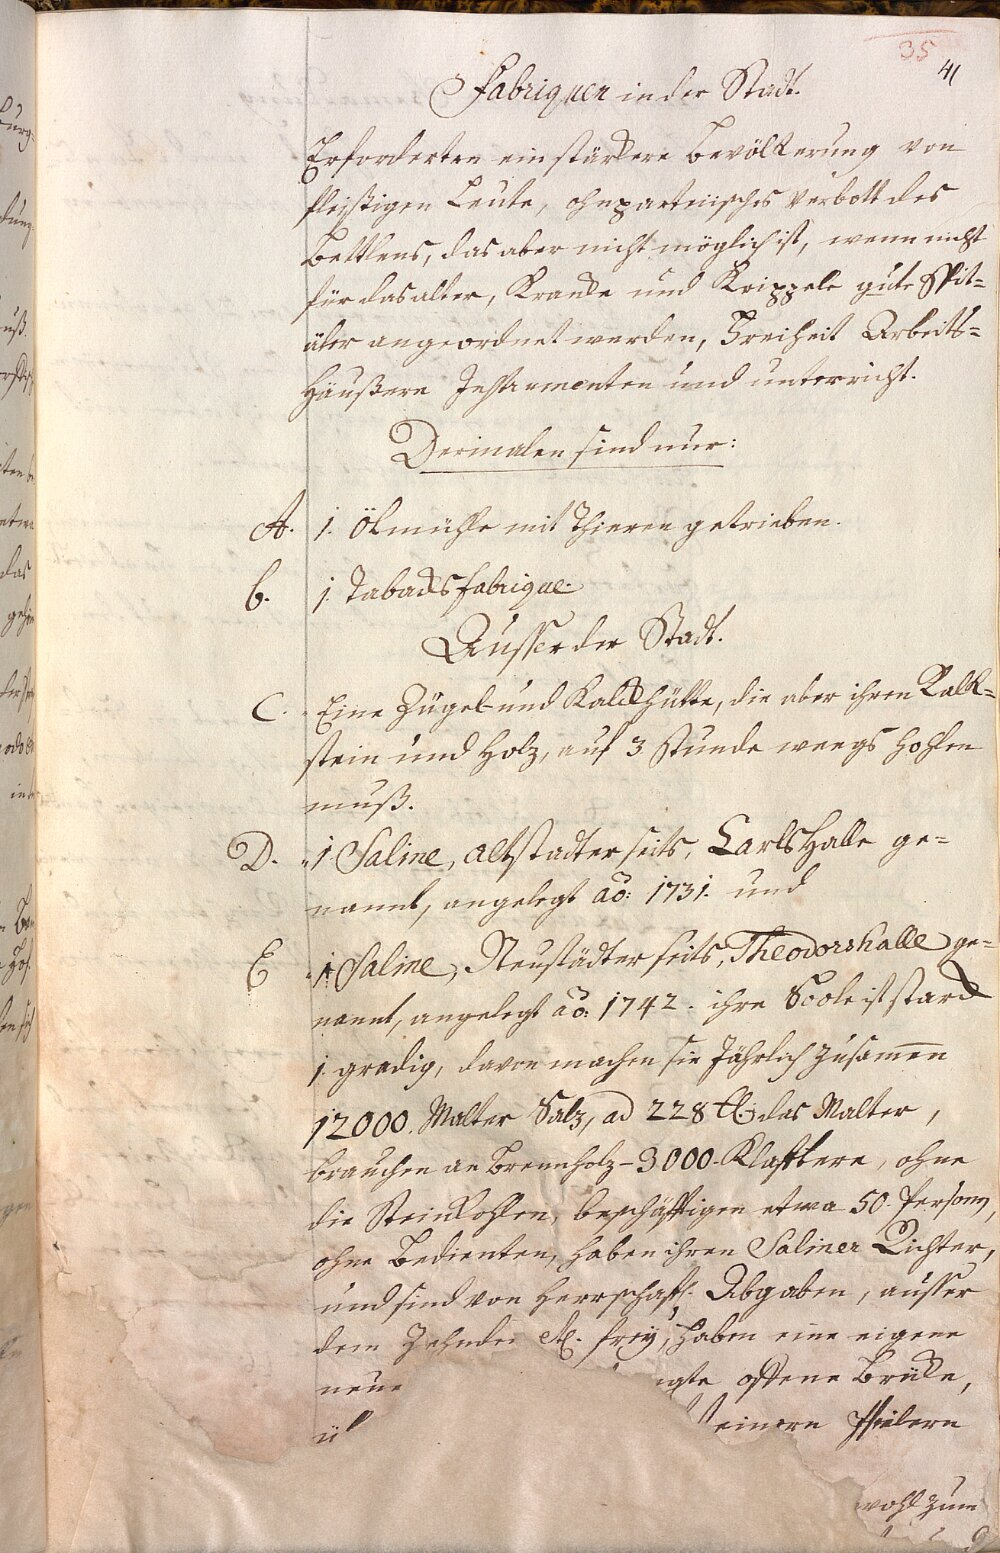 35
41
Fabriquen in der Stadt.
Erforderten ein stärckere Bevölkerung von
fleißigen Leute, ohnparteiisches Verbott des
Bettlens, das aber nicht möglich ist, wenn nicht
für das alter, Krancke und Krippele gute Spit-
äler angeordnet werden, Freiheit Arbeits-
Häußere Instrumenten und unterricht.
Dermalen sind nur:
A. 1. Ölmühle mit Thieren getrieben.
B. 1. Tabacksfabrique.
Äusser der Stadt.
C. Eine Zügel und Kalckhütte, die aber ihren Kalk-
stein und Holz, auf 3 Stunde weegs hohlen
muß.
D. 1 Saline, altstadter seits, Carlshalle ge-
nannt, angelegt ao: 1731. und
E 1 Saline, Neustädter seits, Theodorshalle ge-
nannt, angelegt ao: 1742. ihre Soole ist starck
1. gradig, davon machen sie Jährlich zusamen
12000. Malter Saltz, ad 228 ℔ das Malter,
brauchen an Brennholz - 3000. Klaftere, ohne
die Steinkohlen, beschäftigen etwa 50. Personen,
ohne Bedienten, haben ihren Saliner Richter,
und sind von Herrschaftl. Abgaben, äusser
dem Zehnden frey, haben eine eigene
neue offene Brücke,
steinern Pfeilern
wohl zum